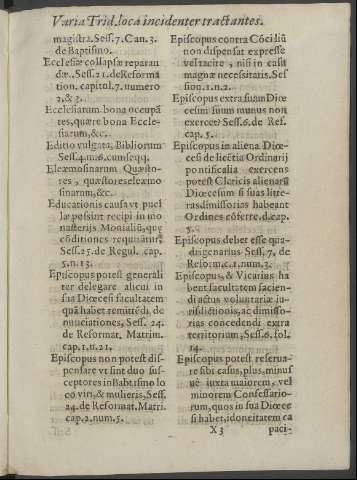 Varia Trid. loca incidenter tractantes.
magistra. Sess. 7. Can. 3.
de Baptismo.
Ecclesiæ collapsæ reparan
dæ. Sess. 21. de Reforma
tion. capitol. 7. numero
2. & 3.
Ecclesiarum bona occupā
tes, quære bona Eccle-
siarum, &c.
Editio vulgata, Bibliorum
Sess. 4. nu. 6. cum seqq.
Eleæmosinarum Quæsto-
res, quæstores eleæmo
sinarum, &c.
Educationis causa vt puel
læ possint recipi in mo
nasterijs Monialiū, quę
cōditiones requirātur,
Sess. 25. de Regul. cap.
5. n. 13.
Episcopus potest generali
ter delegare alicui in
sua Diœcesi facultatem
quā habet remittēdi, de
nuuciationes, Sess. 24.
de Reformat. Matrim.
cap. 1. n. 21.
Episcopus non potest dis-
pensare vt sint duo sus-
ceptores in Babtismo lo
co viri, & mulieris, Sess.
24. de Reformat. Matri.
cap. 2. num. 5.
Episcopus contra Cōciliū
non dispensat expresse
vel tacite, nisi in casu
magnæ necessitatis. Ses
sion. 1. n. 2.
Episcopus extra suam Diœ
cesim suum munus non
exercet. Sess. 6. de Ref.
cap. 5.
Episcopus in aliena Diœ-
ces de licētia Ordinarij
pontificalia exercens
potest Clericis alienarū
Diœcesum si suas litte-
ras dimissorias habeant
Ordines cōferre. d. cap.
5.
Episcopus debet esse qua-
dragenarius Sess. 7. de
Reform. c. 1. num. 3.
Episcopus, & Vicarius ha
bent facultatem facien-
di actus voluntariæ iu-
risdictionis, ac dimisso-
rias concedendi extra
territorium, Sess. 6. fol.
14.
Episcopus potest reserua-
re sibi casus, plus, minus
uè iuxta maiorem, vel
minorem Confessario-
rum, quos in sua Diœce
si habet, idoneitatem ca
X 3
paci-